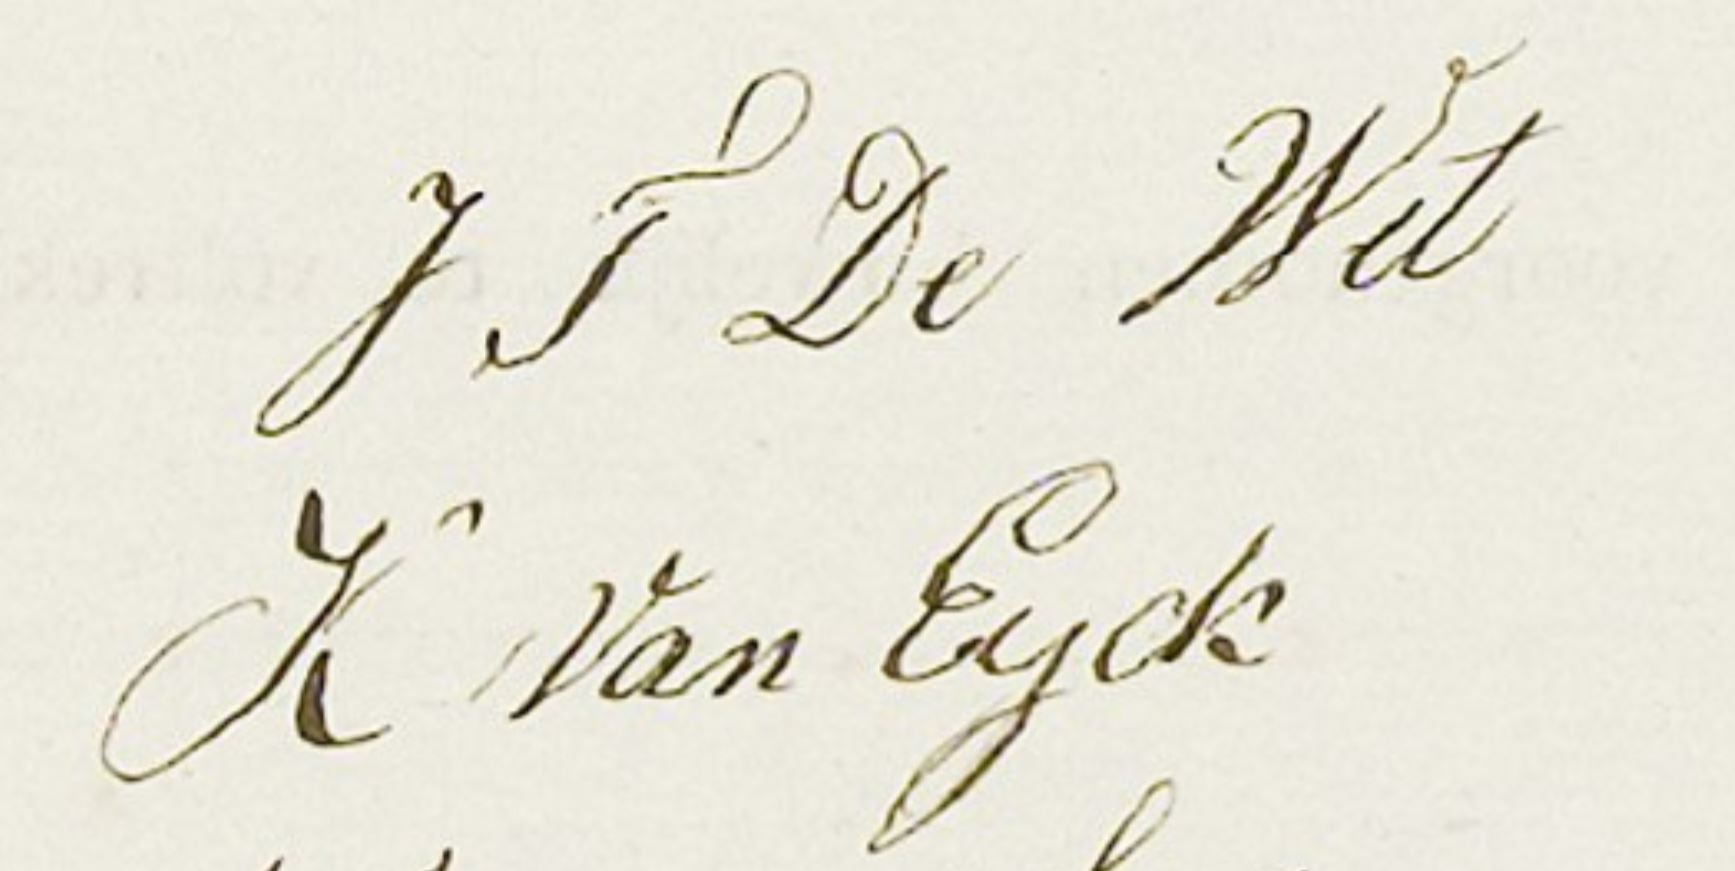 J T De Wit
K Van Eyck